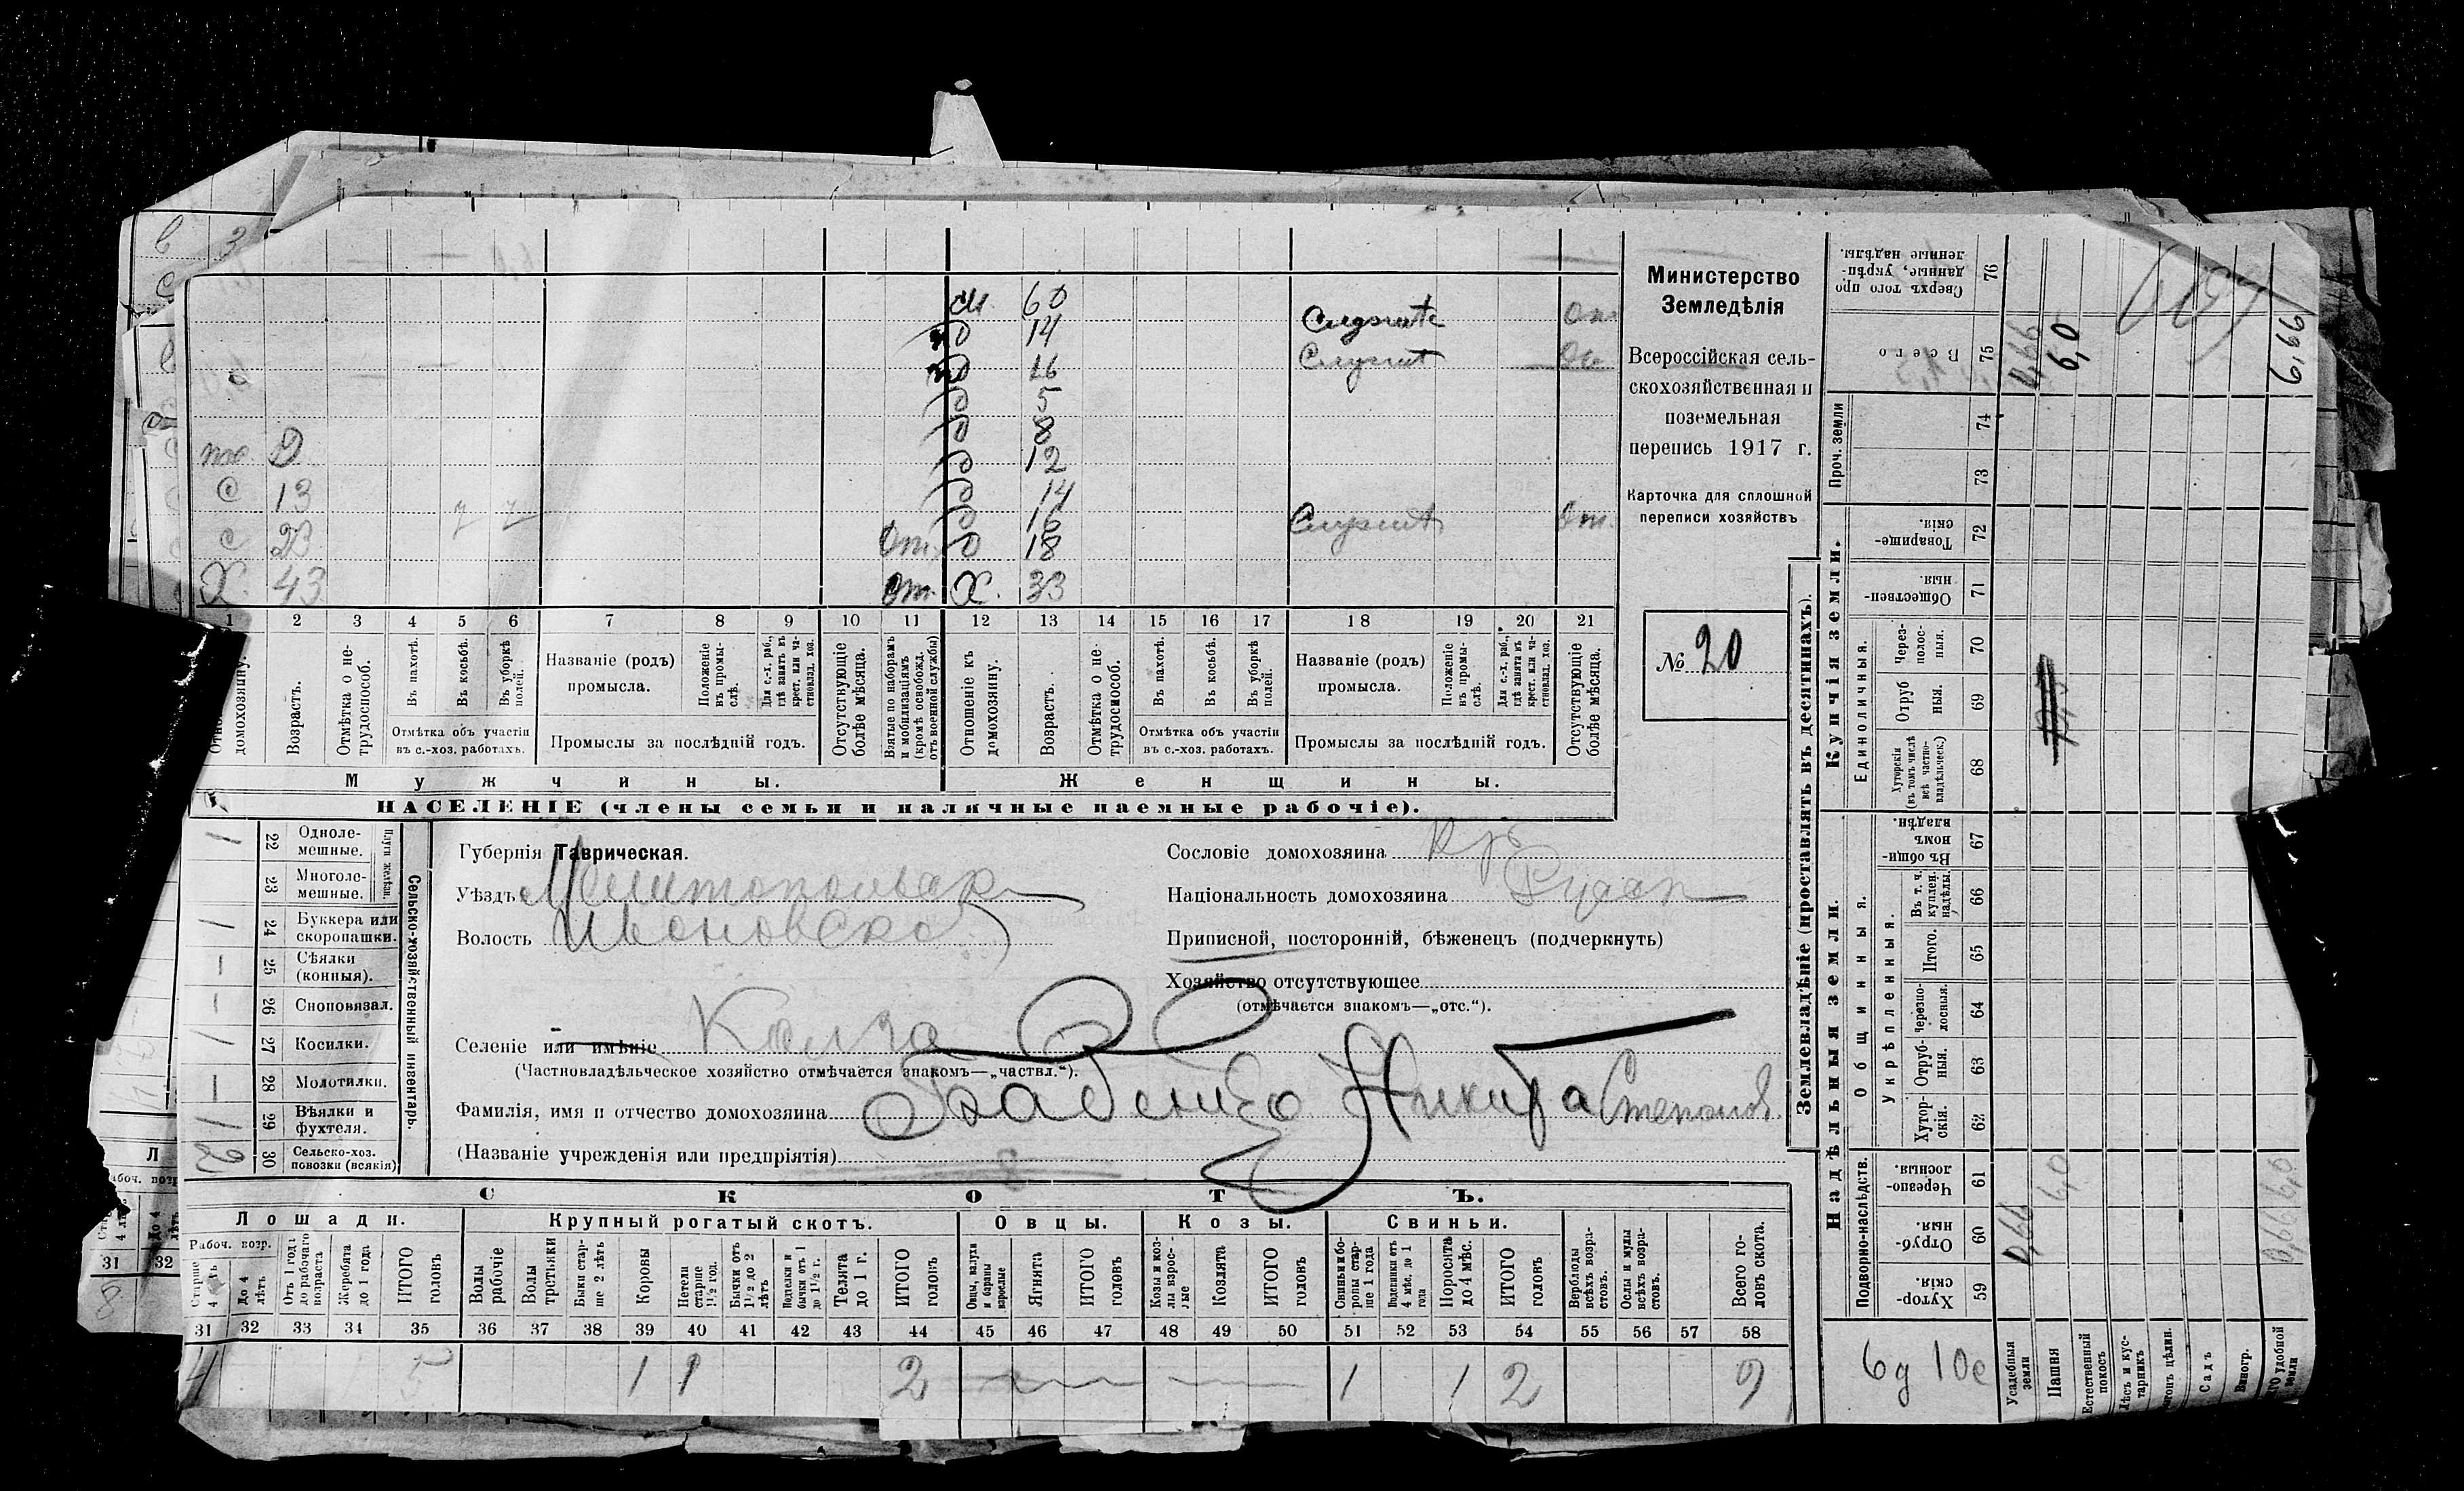 м 60
д 14 Служитъ От
д 16 Служит От
д 5
д 8
пл. 9 д 12
с 13 д 14
д 16 Служит От.
с 23 От. д 18
Х. 43 От. Х. 33
1 2 3 4 5 6 7 8 9 10 11 12 13 14 15 16 17 18 19 20 21
домохозяину.
Возрастъ.
Отмѣтка о нетрудоспособ.
Въ пахотѣ.
Въ косьбѣ.
Въ уборкѣ полей.
Отмѣтка объ участіи
въ с.-хоз. работахъ.
Названіе (родъ)
промысла.
Положеніе въ промыслѣ.
Для с.-х. раб., гдѣ занятъ въ крест. или частновлад. хоз.
Промыслы за послѣдній годъ.
Отсутствующіе болѣе мѣсяца.
Взятые по наборамъ и мобилизаціямъ (кромѣ освобожд. отъ военной службы)
Отношеніе къ домохозяину.
Возрастъ.
Отмѣтка о нетрудоспособ.
Въ пахотѣ.
Въ косьбѣ.
Въ уборкѣ полей.
Отмѣтка объ участіи
въ с.-хоз. работахъ.
Названіе (родъ)
промысла.
Положеніе въ промыслѣ.
Для с.-х. раб., гдѣ занята въ крест. или частновлад. хоз.
Промыслы за послѣдній годъ.
Отсутствующіе болѣе мѣсяца.
Мужчины. Женщины.
НАСЕЛЕНІЕ (члены семьи и наличные наемные рабочіе).
Министерство
Земледѣлія
Всероссійская сель-
скохозяйственная и
поземельная
перепись 1917 г.
Карточка для сплошной
переписи хозяйствъ
№ 20
Сельско-хозяйственный инвентарь.
Плуги желѣзн.
1 22 Одноле-
мешные.
23 Многоле-
мешные.
1 24 Буккера или
скоропашки.
25 Сѣялки
(конныя).
26 Сноповязал.
1 27 Косилки.
28 Молотилки.
1 29 Вѣялки и
фухтеля.
2 30 Сельско-хоз.
повозки (всякія)
Губернія Таврическая.
Уѣздъ Мелитопольск
Волость
Сословіе домохозяина кр
Національность домохозяина Русск
Приписной, посторонній, бѣженецъ (подчеркнуть)
Хозяйство отсутствующее
(отмѣчается знакомъ—„отс.“).
Селеніе или имѣніе Колга
(Частновладѣльческое хозяйство отмѣчается знакомъ—„частвл.“).
Фамилія, имя и отчество домохозяина Бабенко Никита Степанов.
(Названіе учрежденія или предпріятія) 8
СКОТЪ.
Лошади. Крупный рогатый скотъ. Овцы. Козы. Свиньи.
Рабоч. возр.
Старше 4 лѣтъ
До 4 лѣтъ
Отъ 1 года до рабочаго возраста
Жеребята до 1 года
ИТОГО головъ
Волы рабочіе
Волы третьяки
Быки старше 2 лѣтъ
Коровы
Нетели старше 1½ год.
Бычки отъ 1½ до 2 лѣтъ
Подтелки и бычки отъ 1 до 1½ г.
Телята до 1 г.
ИТОГО головъ
Овцы, валухи и бараны взрослые
Ягнята
ИТОГО головъ
Козы и козлы взрослые
Козлята
ИТОГО головъ
Свиньи и боровы старше 1 года
Подсвинки отъ 4 мѣс. до 1 года
Поросята до 4 мѣс.
ИТОГО головъ
Верблюды всѣхъ возрастовъ.
Ослы и мулы всѣхъ возрастовъ.
Всего головъ скота.
31 32 33 34 35 36 37 38 39 40 41 42 43 44 45 46 47 48 49 50 51 52 53 54 55 56 57 58
4 5 1 1 2 1 1 2 9
Землевладѣніе (проставлять въ десятинахъ).
Сверхъ того проданные, укрѣпленные надѣлы. 76
Всего 75 0,66 6,0 6,66
Проч. земли
74
73
Купчія земли.
Товарищескія. 72
Общественныя. 71
Единоличныя.
Черезполосныя. 70
Отрубныя. 69
Хуторскія (въ томъ числѣ всѣ частновладѣльческ.) 68
Надѣльныя земли.
Общинныя.
Въ общиномъ владѣн. 67
Укрѣпленныя.
Въ т. ч. куплен. надѣлы. 66
Итого. 65
Черезполосныя. 64
Отрубныя. 63
Хуторскія. 62
Подворно-наслѣдств.
Черезполосныя. 61 6,0
Отрубныя. 60 0,66
Хуторскія. 59
0,66 6,0
6д 10с
Усадебныя земли
Пашня
Естественный покосъ
Лѣсъ и кустарникъ
Садъ
Виногр.
удобной земли